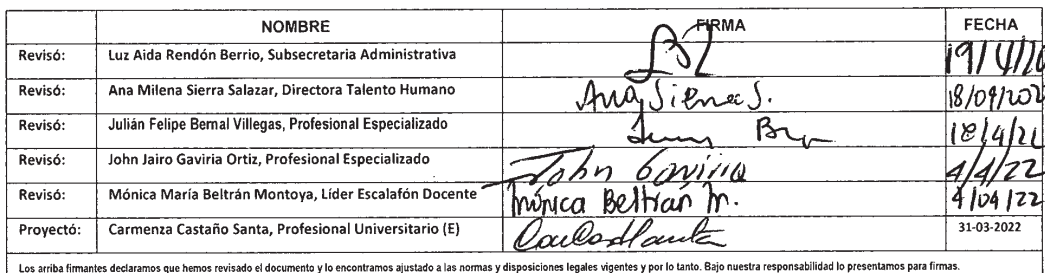 NOMBRE FIRMA FECHA
Revisó: Luz Aida Rendón Berrio, Subsecretaria Administrativa
Revisó: Ana Milena Sierra Salazar, Directora Talento Humano Ana Sierra S. 18/04/202
Revisó: Julián Felipe Bernal Villegas, Profesional Especializado
Revisó: John Jairo Gaviria Ortiz, Profesional Especializado John Gaviria 4/4/22
Revisó: Mónica María Beltrán Montoya, Líder Escalafón Docente Mónica Beltrán M. 4/04/22
Proyectó: Carmenza Castaño Santa, Profesional Universitario (E) 31-03-2022
Los arriba firmantes declaramos que hemos revisado el documento y lo encontramos ajustado a las normas y disposiciones legales vigentes y por lo tanto. Bajo nuestra responsabilidad lo presentamos para firmas.